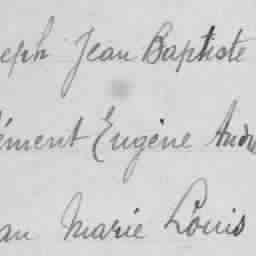 seph Jean Baptiste
lément Eugène André
ean Marie Louis